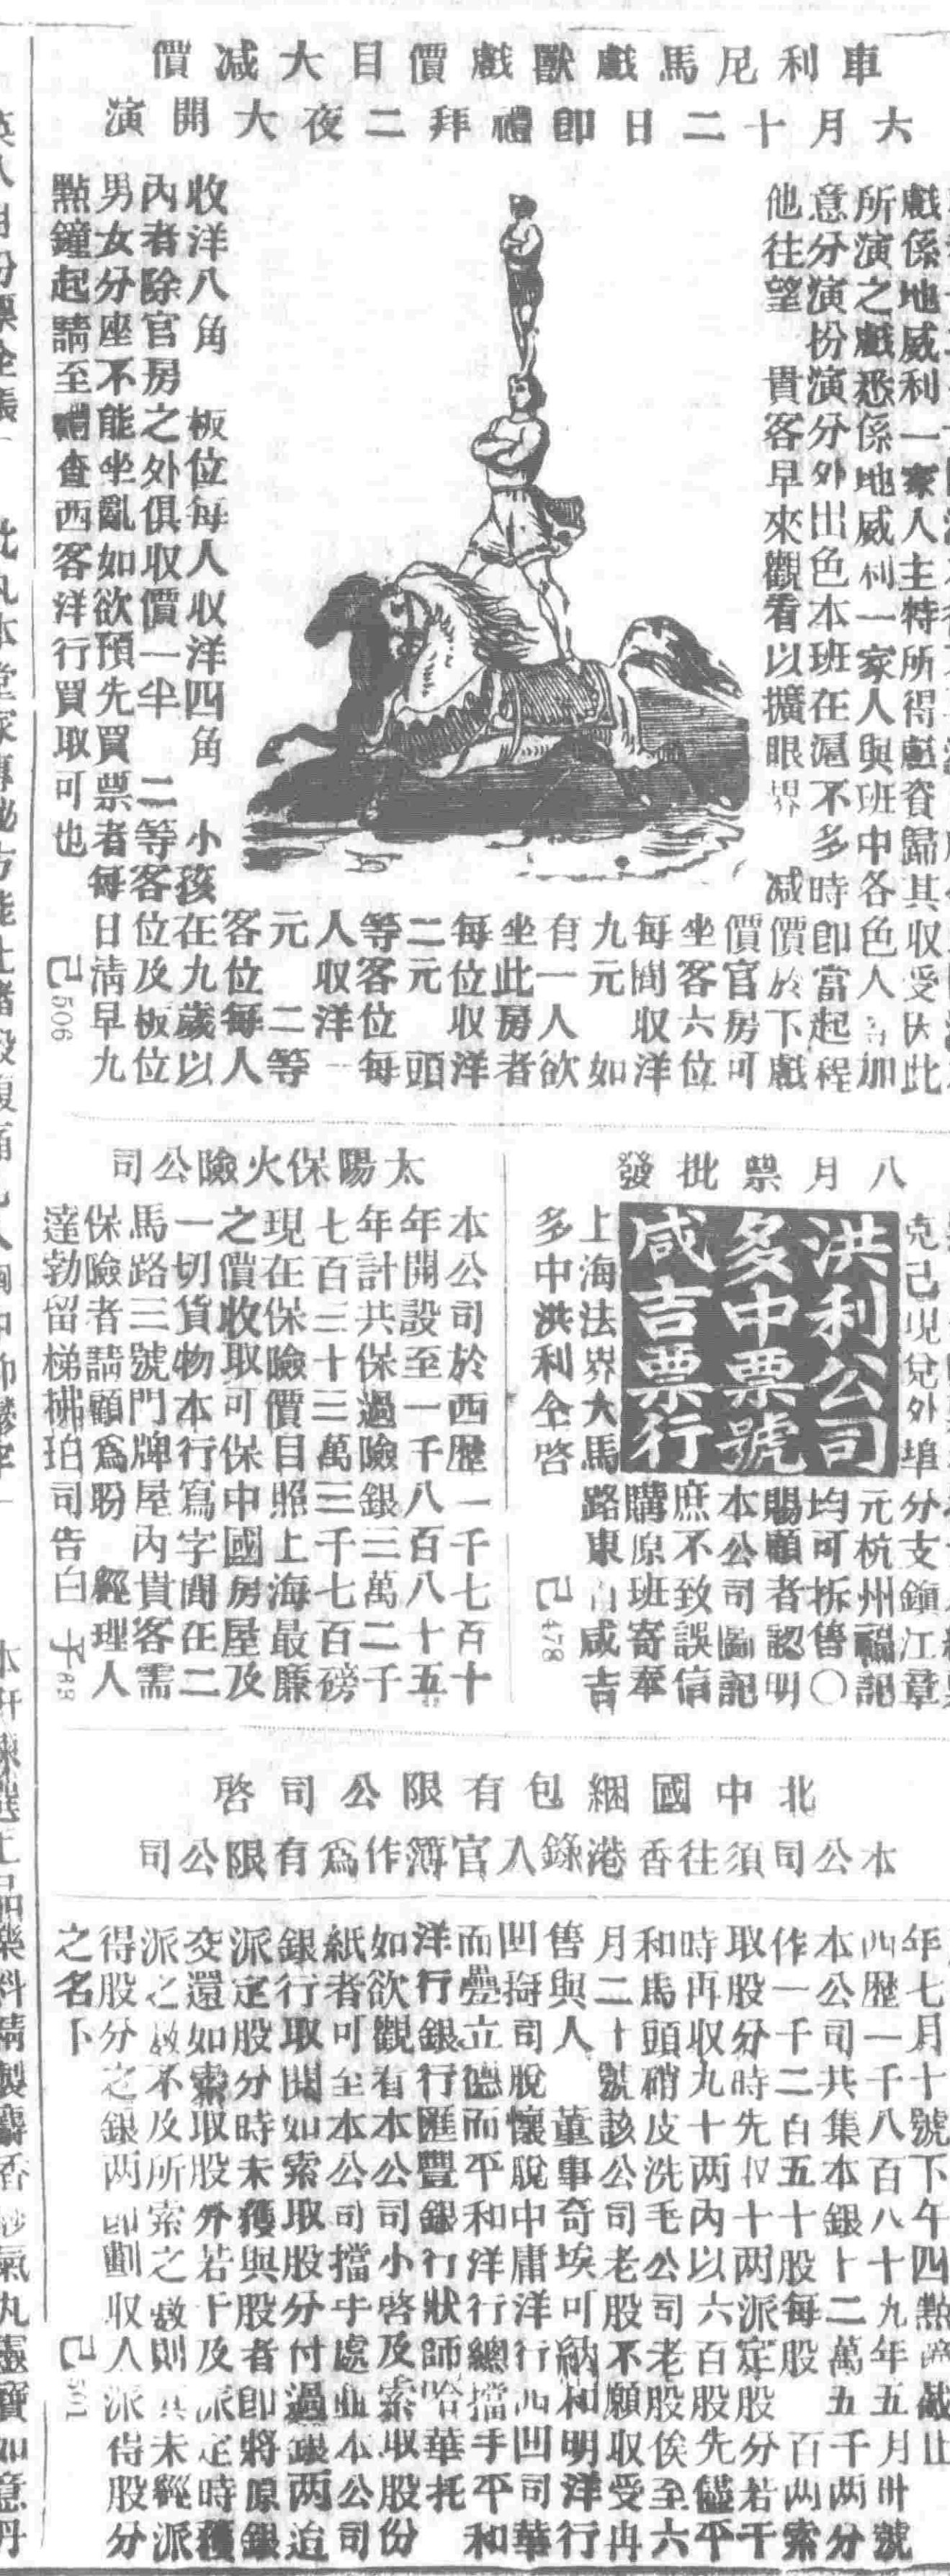 車利尼馬戲獸戲價目大減價
六月十二日即禮拜二夜大開演
戲係地威利一家人主特所得戲資歸其收受因此
所演之戲悉係地威利一家人與班中各色人加
意分演扮演分外出色本班在滬不多時即當起程
他往望 貴客早來觀看以擴眼界 減價於下戲
價官房可
坐客六位
每間收洋
九元 如
有一人欲
坐此房者
每位收洋
二元 頭
等客位每
人收洋一
元 二等
客位每人
收洋八角 板位每人收洋四角 小孩在九歲以
內者除官房之外俱收價一半 二等客位及板位
男女分座不能坐亂如欲預先買票者每日清早九
點鐘起請至禮查西客洋行買取可也 己506
八月票批發
洪利公司
多中票號
咸吉票行
克己現兌外埠分支鎮江章
元杭州福記
均可拆售〇
賜顧者認明
本公司圖記
庶不致誤信
購原班寄奉
上海法界大馬路東咸吉
多中洪利仝啓 己478
太陽保火險公司
本公司於西歷一千七百十
年開設至一千八百八十五
年計共保過險銀三萬二千
七百三十三萬三千七百磅
現在保險價目照上海最廉
之價收取可保中國房屋及
一切貨物本行寫字間在二
馬路三號門牌屋內貴客需
保險者請顧爲盼 經理人
達勃留梯拂珀司告白
北中國綑包有限公司啓
本公司須往香港錄入官簿作爲有限公司
年七月十號下午四點鐘截止
西歷一千八百八十九年五月卅號
本公司共集本銀十二萬五千兩分
作一千二百五十股每股 百兩索
取股分時先收十兩派定股分若干
時再收九十兩內以六百股先儘平
和馬頭硝皮洗毛公司老股俟至六
月二十號該公司老股不願取受再
售與人 董事奇埃可納和明洋行
凹搿司脫懷脫中庸洋行西凹司華
而疊立德而平和洋行總擋手平和
洋行銀行匯豐銀行狀師哈華托
如欲觀有本公司小啓及索取股份
紙者可至本公司擋手處並本公司
銀行取閱如索取股分付過銀兩迨
派定股分時未獲與股者即將原銀
交還如索取股外若干及派定時獲
派之數不及所索之數則其未經派
得股分之銀兩即劃收入派得股分
之名下 己501